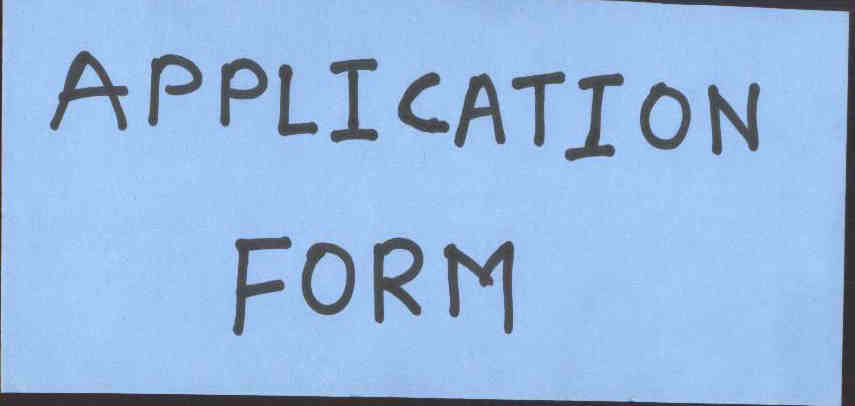 APPLICATION
FORM